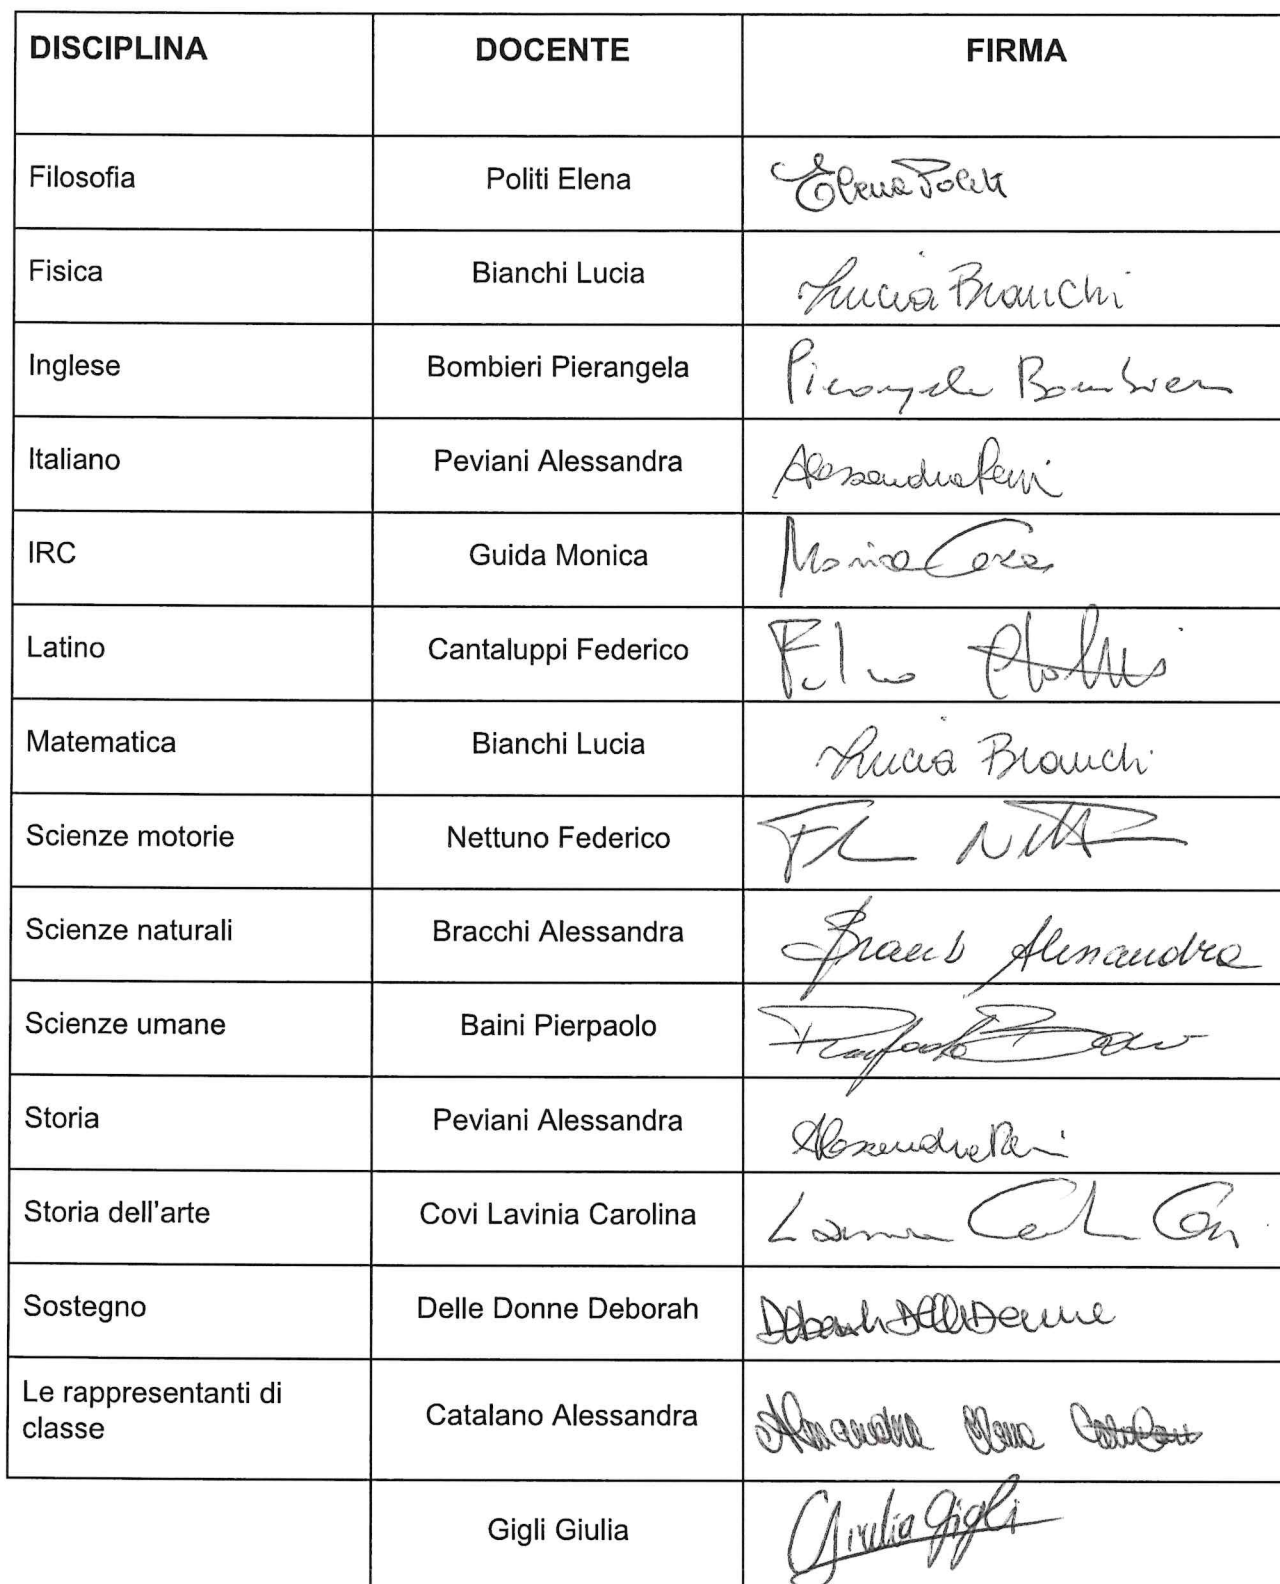 DISCIPLINA DOCENTE FIRMA
Filosofia Politi Elena Elena Politi
Fisica Bianchi Lucia Lucia Bianchi
Inglese Bombieri Pierangela Pierangela Bombieri
Italiano Peviani Alessandra Alessandra
IRC Guida Monica Monica
Latino Cantaluppi Federico
Matematica Bianchi Lucia Lucia Bianchi
Scienze motorie Nettuno Federico
Scienze naturali Bracchi Alessandra Alessandra
Scienze umane Baini Pierpaolo
Storia Peviani Alessandra Alessandra
Storia dell'arte Covi Lavinia Carolina
Sostegno Delle Donne Deborah Deborah Delle Donne
Le rappresentanti di
classe Catalano Alessandra Alessandra Elena Catalano
Gigli Giulia Giulia Gigli